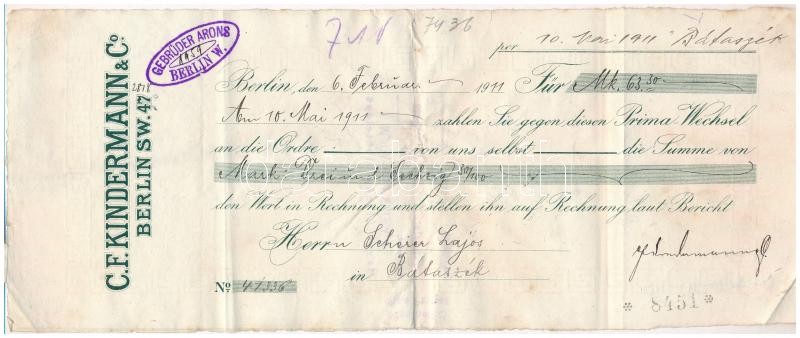 7436
per 10. Mai 1911 Bátaszék
C.F. KINDERMANN & Co.
BERLIN SW. 47
GEBRÜDER ARONS
1959
BERLIN W.
Berlin, den 6. Februar 1911 Für Mk. 63.50
Am 10. Mai 1911 zahlen Sie gegen diesen Prima Wechsel
an die Ordre von uns selbst die Summe von
Mark: Dreiundsechzig 50/100
den Wert in Rechnung und stellen ihn auf Rechnung laut Bericht
Herrn Scheier Lajos
in Bátaszék
No. 41336
* 8451 *